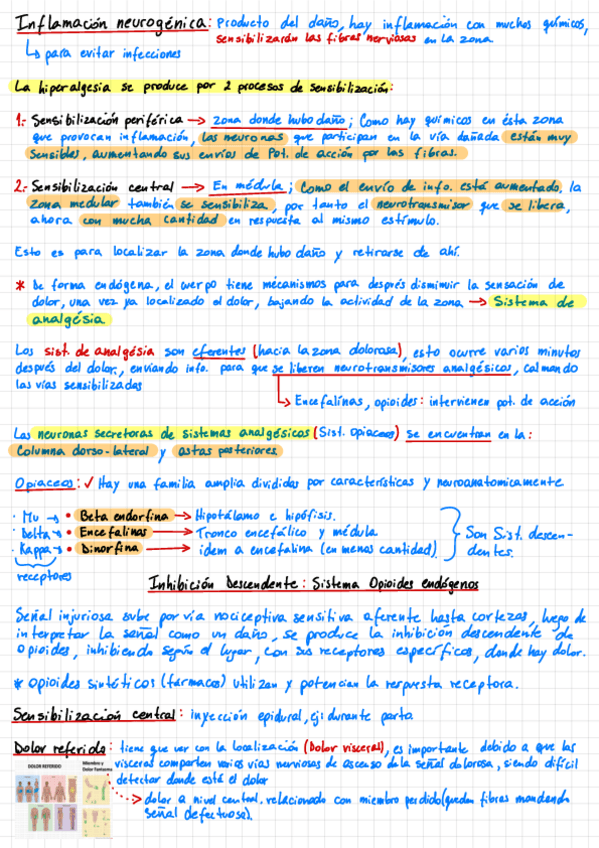 Inflamación neurogénica: Producto del daño, hay inflamación con muchos químicos,
sensibilizarán las fibras nerviosas en la zona
↳ para evitar infecciones
La hiperalgesia se produce por 2 procesos de sensibilización:
1.- Sensibilización periférica → zona donde hubo daño; Como hay químicos en ésta zona
que provocan inflamación, las neuronas que participan en la vía dañada están muy
sensibles, aumentando sus envíos de Pot. de acción por las fibras.
2.- Sensibilización central → En médula; Como el envío de info. está aumentado, la
zona medular también se sensibiliza, por tanto el neurotransmisor que se libera,
ahora con mucha cantidad en respuesta al mismo estímulo.
Esto es para localizar la zona donde hubo daño y retirarse de ahí.
* De forma endógena, el cuerpo tiene mecanismos para después disminuir la sensación de
dolor, una vez ya localizado el dolor, bajando la actividad de la zona → Sistema de
analgésia
Los sist. de analgésia son eferentes (hacia la zona dolorosa), esto ocurre varios minutos
después del dolor., enviando info. para que se liberen neurotransmisores analgésicos, calmando
las vías sensibilizadas
↳ Encefalínas, opioides: intervienen pot. de acción
Las neuronas secretoras de sistemas analgésicos (Sist. Opiaceos) se encuentran en la:
Columna dorso-lateral y astas posteriores.
Opiaceos: ✓ Hay una familia amplia divididas por características y neuroanatomicamente
· Mu → • Beta endorfina → Hipotálamo e hipófisis.
· Delta → • Encefalinas → Tronco encefálico y médula
· Kappa → • Dinorfina → idem a encefalina (en menos cantidad).
Son Sist. descen-
dentes.
receptores
Inhibición Descendente: Sistema Opioides endógenos
Señal injuriosa sube por vía nociceptiva sensitiva aferente hasta cortezas, luego de
interpretar la señal como un daño, se produce la inhibición descendente de
opioides, inhibiendo según el lugar, con sus receptores específicos, donde hay dolor.
* Opioides sintéticos (fármacos) utilizan y potencian la respuesta receptora.
Sensibilización central: inyección epidural, ej: durante parto
Dolor referido: tiene que ver con la localización (Dolor visceral), es importante debido a que las
visceral comparten varias vías nerviosas de ascenso de la señal dolorosa, siendo difícil
detectar donde está el dolor
DOLOR REFERIDO
Miembro y
Dolor fantasma
→ dolor a nivel central. relacionado con miembro perdido (quedan fibras mandando
señal defectuosa).